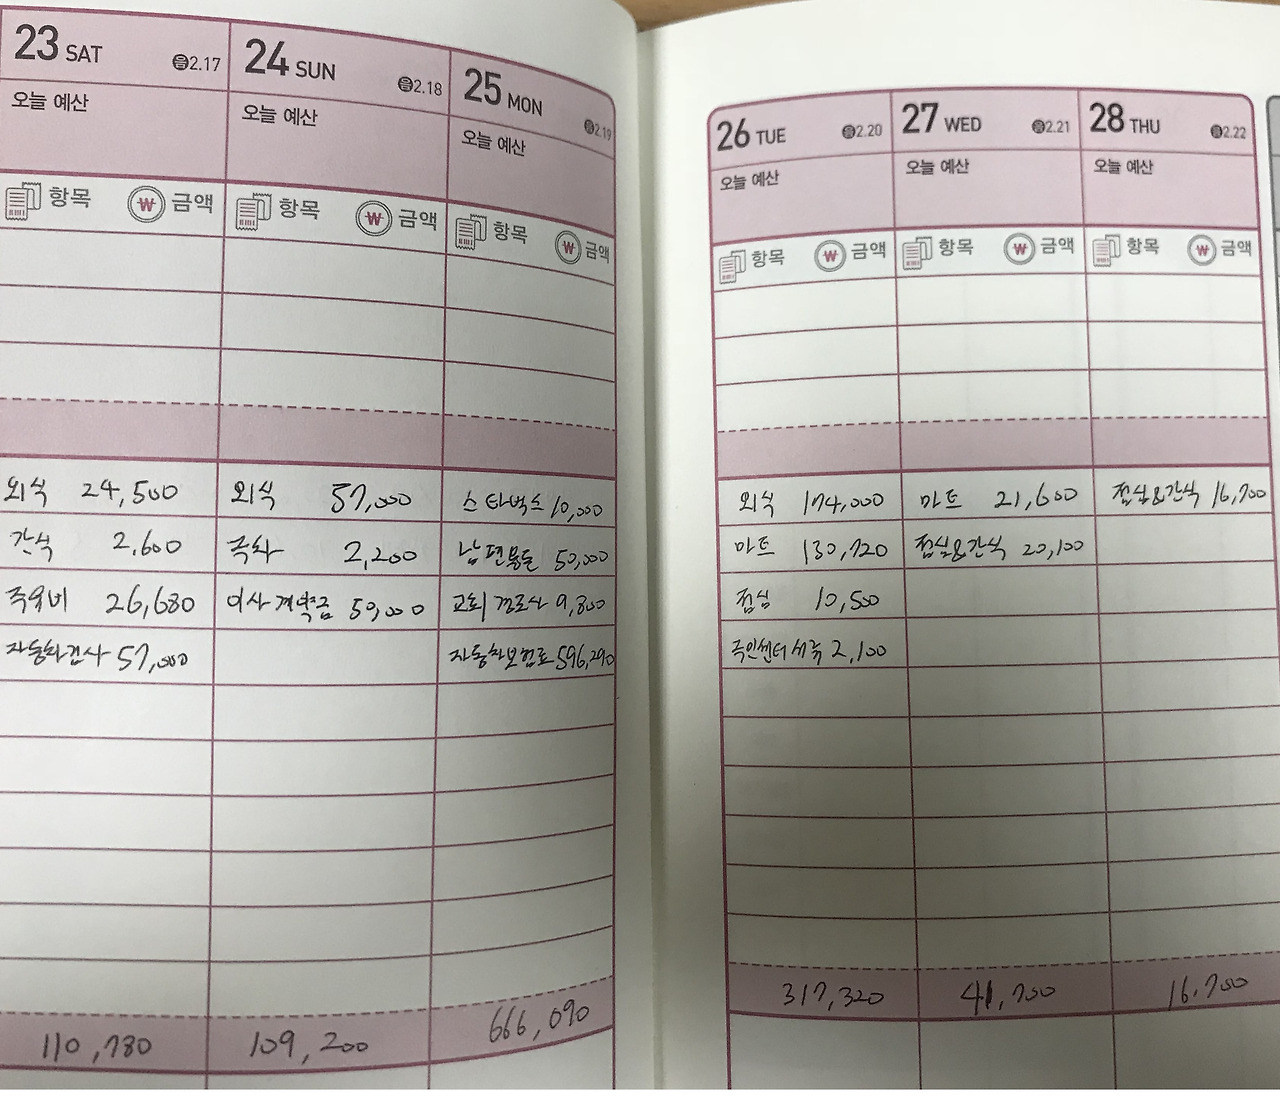 23 SAT 음2.17
오늘 예산
항목 ₩ 금액
외식 24,500
간식 2,600
주유비 26,680
자동차검사 57,000
110,780
24 SUN 음2.18
오늘 예산
항목 ₩ 금액
외식 57,000
주차 2,200
이사 계약금 50,000
109,200
25 MON 음2.19
오늘 예산
항목 ₩ 금액
스타벅스 10,000
남편용돈 50,000
교회 경조사 9,800
자동차보험료 596,290
666,090
26 TUE 음2.20
오늘 예산
항목 ₩ 금액
외식 174,000
마트 130,720
점심 10,500
주민센터 서류 2,100
317,320
27 WED 음2.21
오늘 예산
항목 ₩ 금액
마트 21,600
점심&간식 20,100
41,700
28 THU 음2.22
오늘 예산
항목 ₩ 금액
점심&간식 16,700
16,700